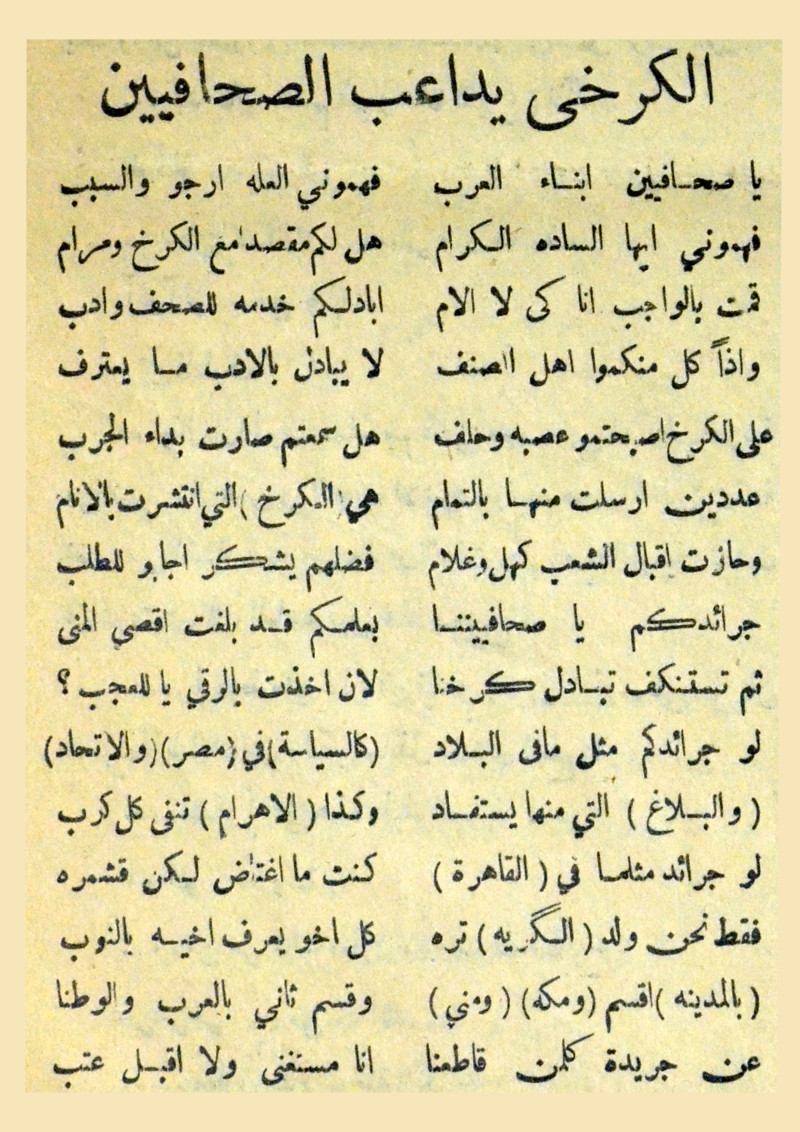 الكرخى يداعب الصحافيين
يا صحافيين ابناء العرب فهموني العله ارجو والسبب
فهموني ايها الساده الكرام هل لكم مقصد امع الكرخ ومرام
قمت بالواجب انا كى لا الام ابادلكم خدمه للصحف وادب
واذاً كل منكموا اهل الصنف لا يبادل بالادب ما يعترف
على الكرخ اصبحتمو عصبه وحلف هل سمعتم صارت بداء الجرب
عددين ارسلت منها بالتمام هي (الكرخ) التي انتشرت بالانام
وحازت اقبال الشعب كهل وغلام فضلهم يشكر اجابو للطلب
جرائدكم يا صحافيننا بعلمكم قد بلغت اقصي المنى
ثم تستنكف تبادل كرخنا لان اخذت بالرقي يا للعجب ؟
لو جرائدكم مثل مافى البلاد (كالسياسة) في (مصر) (والاتحاد)
(والبلاغ) التي منها يستفاد وكذا (الاهرام) تنفى كل كرب
لو جرائد مثلما في (القاهرة) كنت ما اغتاض لكن قشمره
فقط نحن ولد (الگريه) تره كل اخو يعرف اخيه بالنوب
(بالمدينه) اقسم (ومكه) (ومني) وقسم ثاني بالعرب والوطنا
عن جريدة كلمن قاطعنا انا مستغنى ولا اقبل عتب